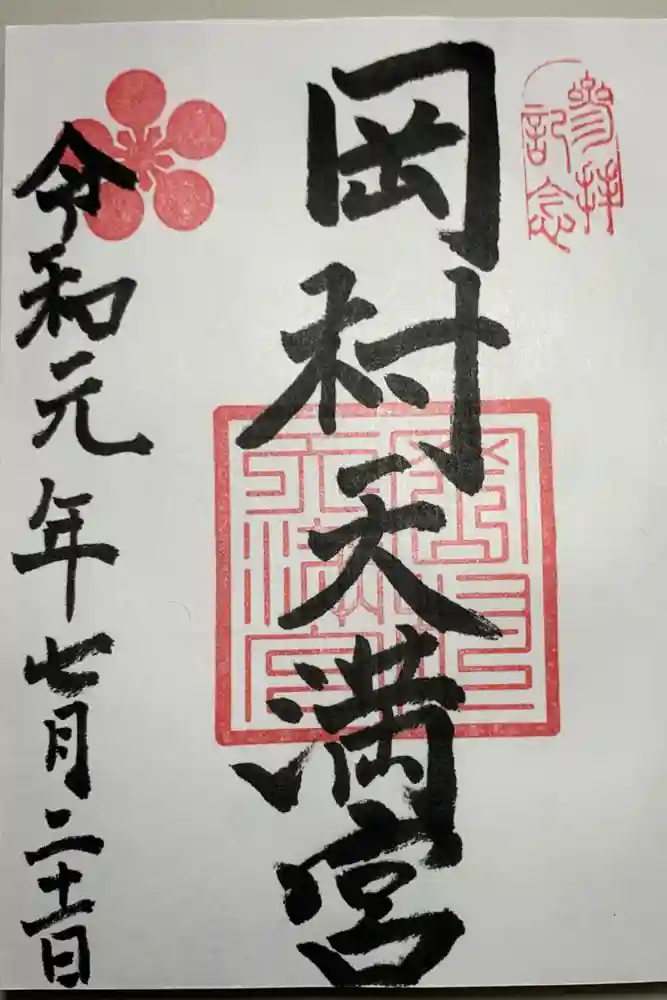 参拝
記念
岡村天満宮
令和元年七月二十一日